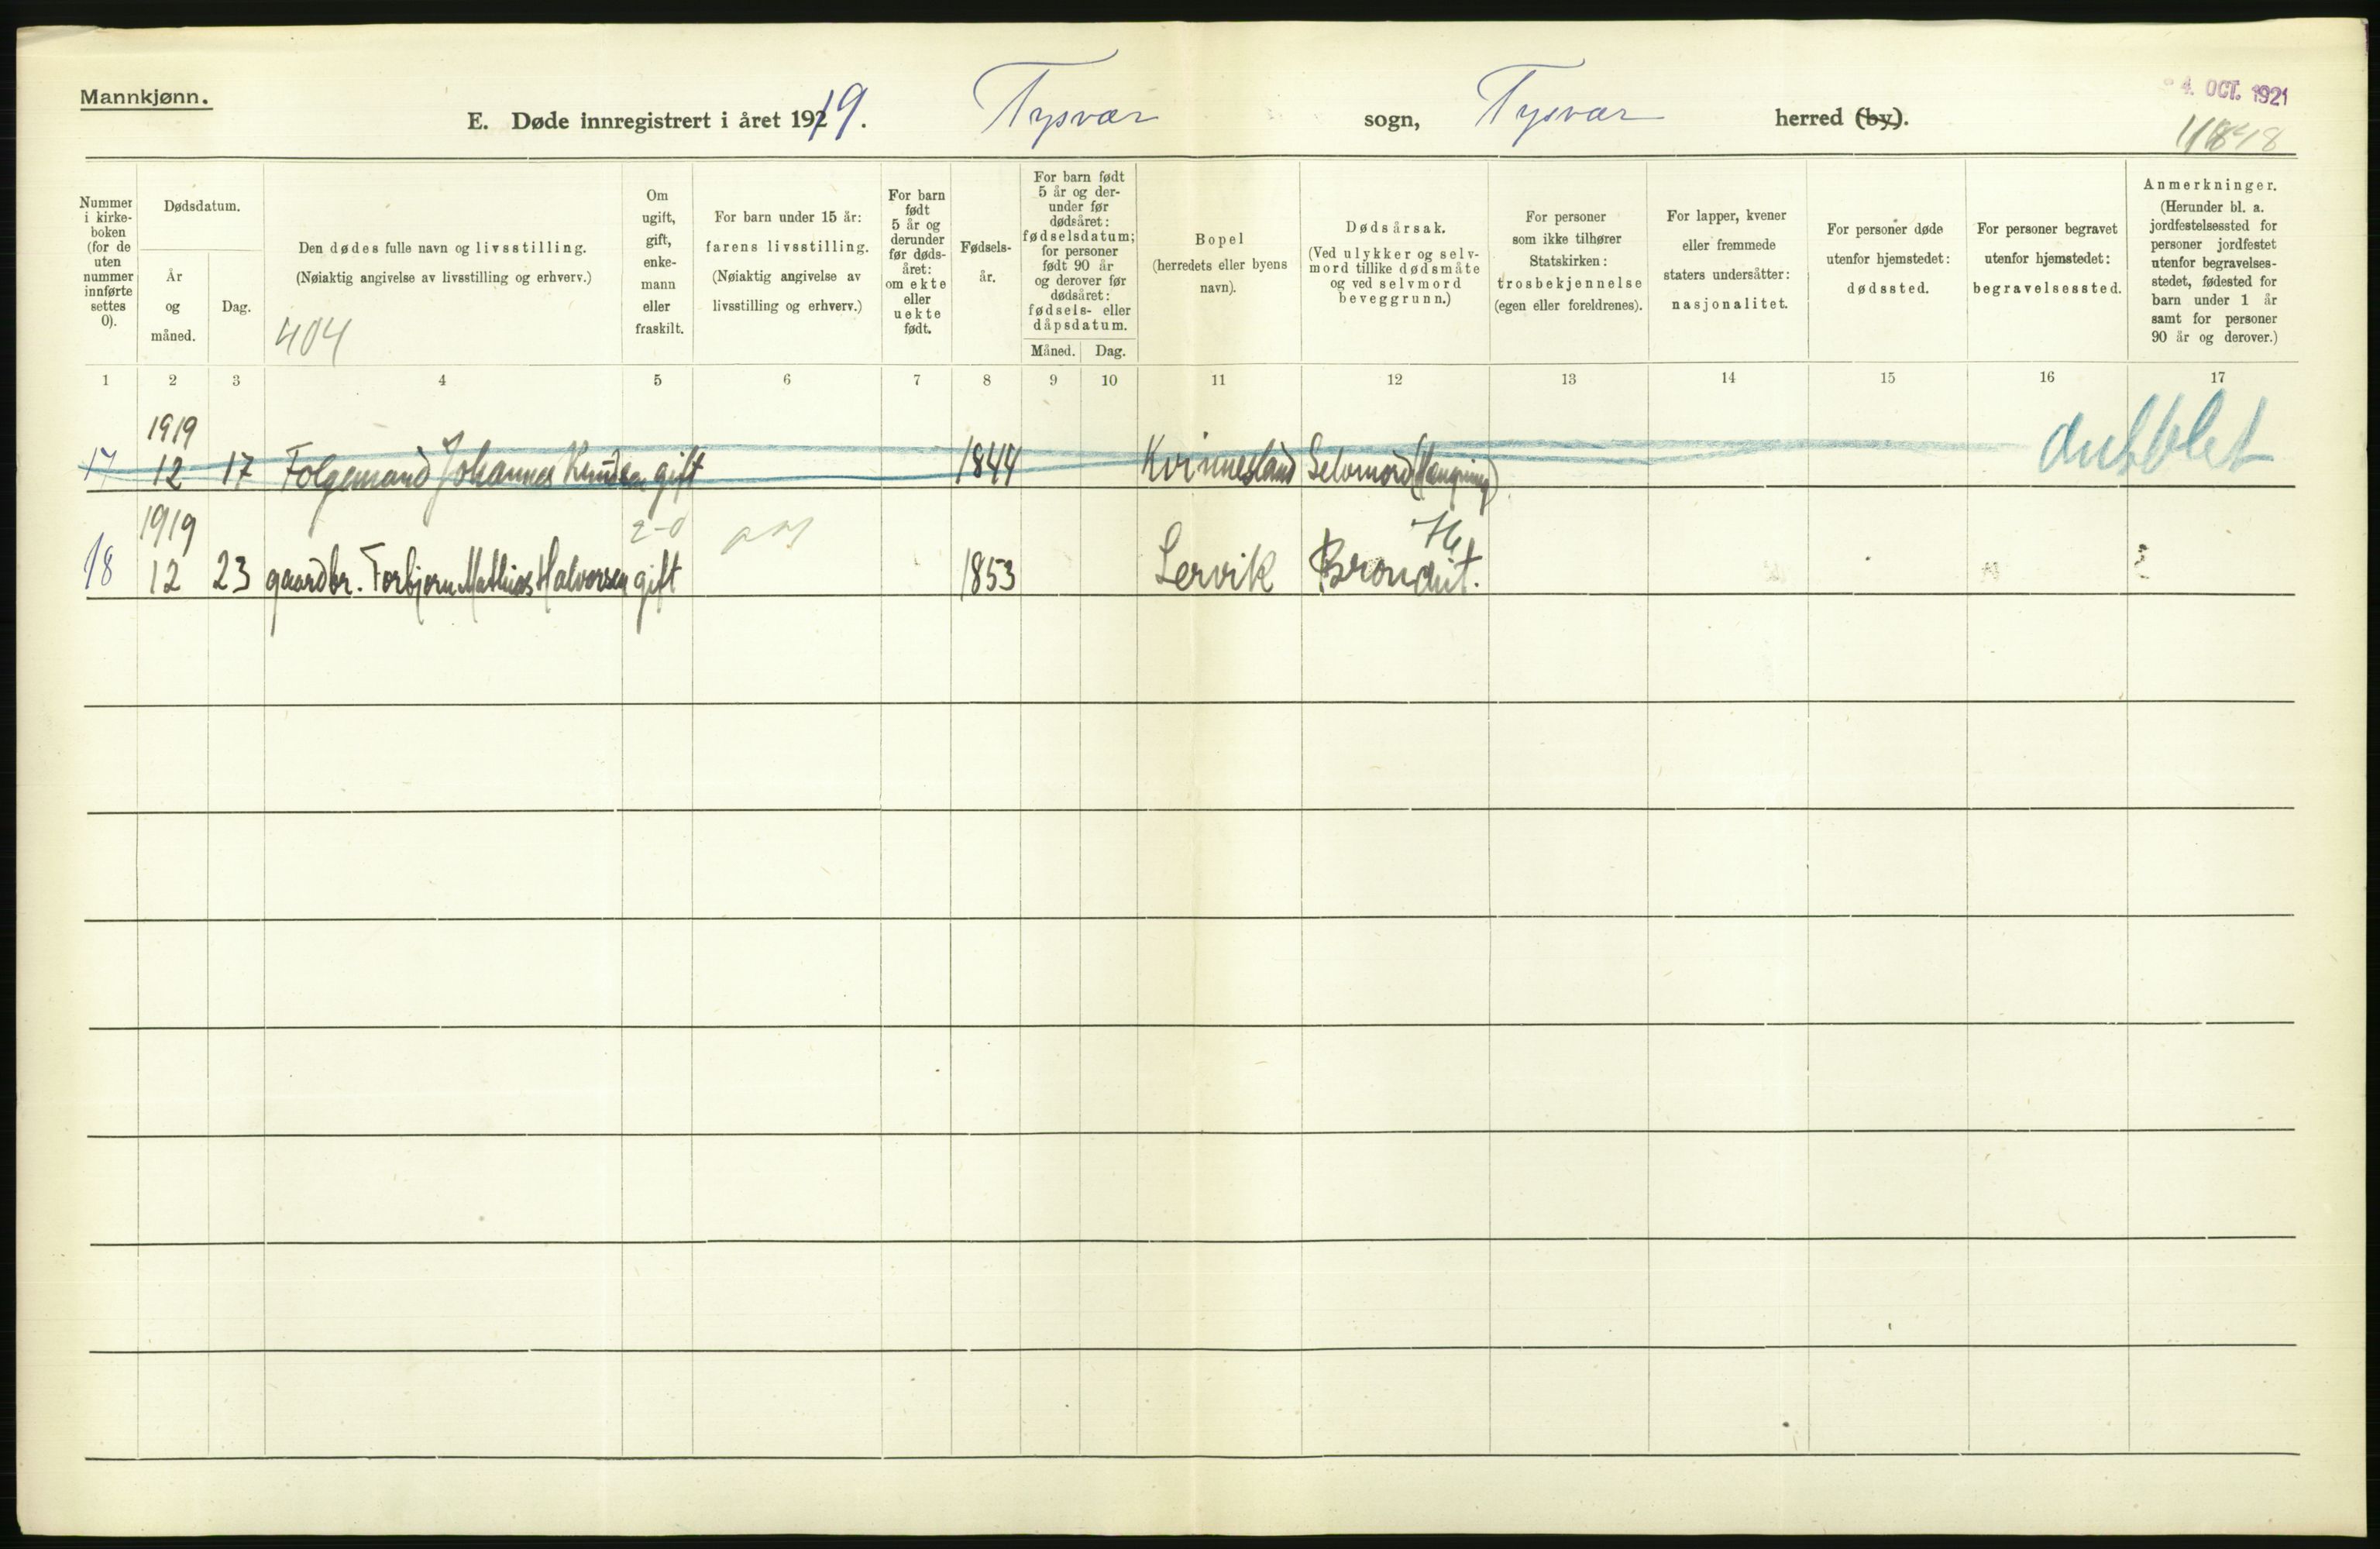 Mannkjønn.
4. OCT. 1921
E. Døde innregistrert i året 1919. Tysvær sogn, Tysvær herred (by).
Nummer i kirke- boken (for de uten nummer innførte settes 0).
Dødsdatum.
År og måned.
Dag.
Den dødes fulle navn og livsstilling.
(Nøiaktig angivelse av livsstilling og erhverv.)
404
Om ugift, gift, enke- mann eller fraskilt.
For barn under 15 år:
farens livsstilling.
(Nøiaktig angivelse av
livsstilling og erhverv.)
For barn født 5 år og derunder før døds- året: om ekte eller uekte født.
Fødsels- år.
For barn født 5 år og der- under før dødsåret: fødselsdatum; for personer født 90 år og derover før dødsåret: fødsels- eller dåpsdatum.
Måned. Dag.
Bopel
(herredets eller byens
navn).
Dødsårsak.
(Ved ulykker og selv- mord tillike dødsmåte og ved selvmord beveggrunn.)
For personer
som ikke tilhører
Statskirken:
trosbekjennelse
(egen eller foreldrenes).
For lapper, kvener
eller fremmede
staters undersåtter:
nasjonalitet.
For personer døde
utenfor hjemstedet:
dødssted.
For personer begravet
utenfor hjemstedet:
begravelsessted.
Anmerkninger.
(Herunder bl. a.
jordfestelsessted for
personer jordfestet
utenfor begravelses-
stedet, fødested for
barn under 1 år
samt for personer
90 år og derover.)
1 2 3 4 5 6 7 8 9 10 11 12 13 14 15 16 17
1919
17 12 17 Folgemand Johannes Knudsen gift 1844 Kvinnesland Selvmord (Hængning) dubblet
1919
2-0
18 12 23 gaardbr. Torbjørn Mathias Halvorsen gift 1853 Lervik Bronchit.